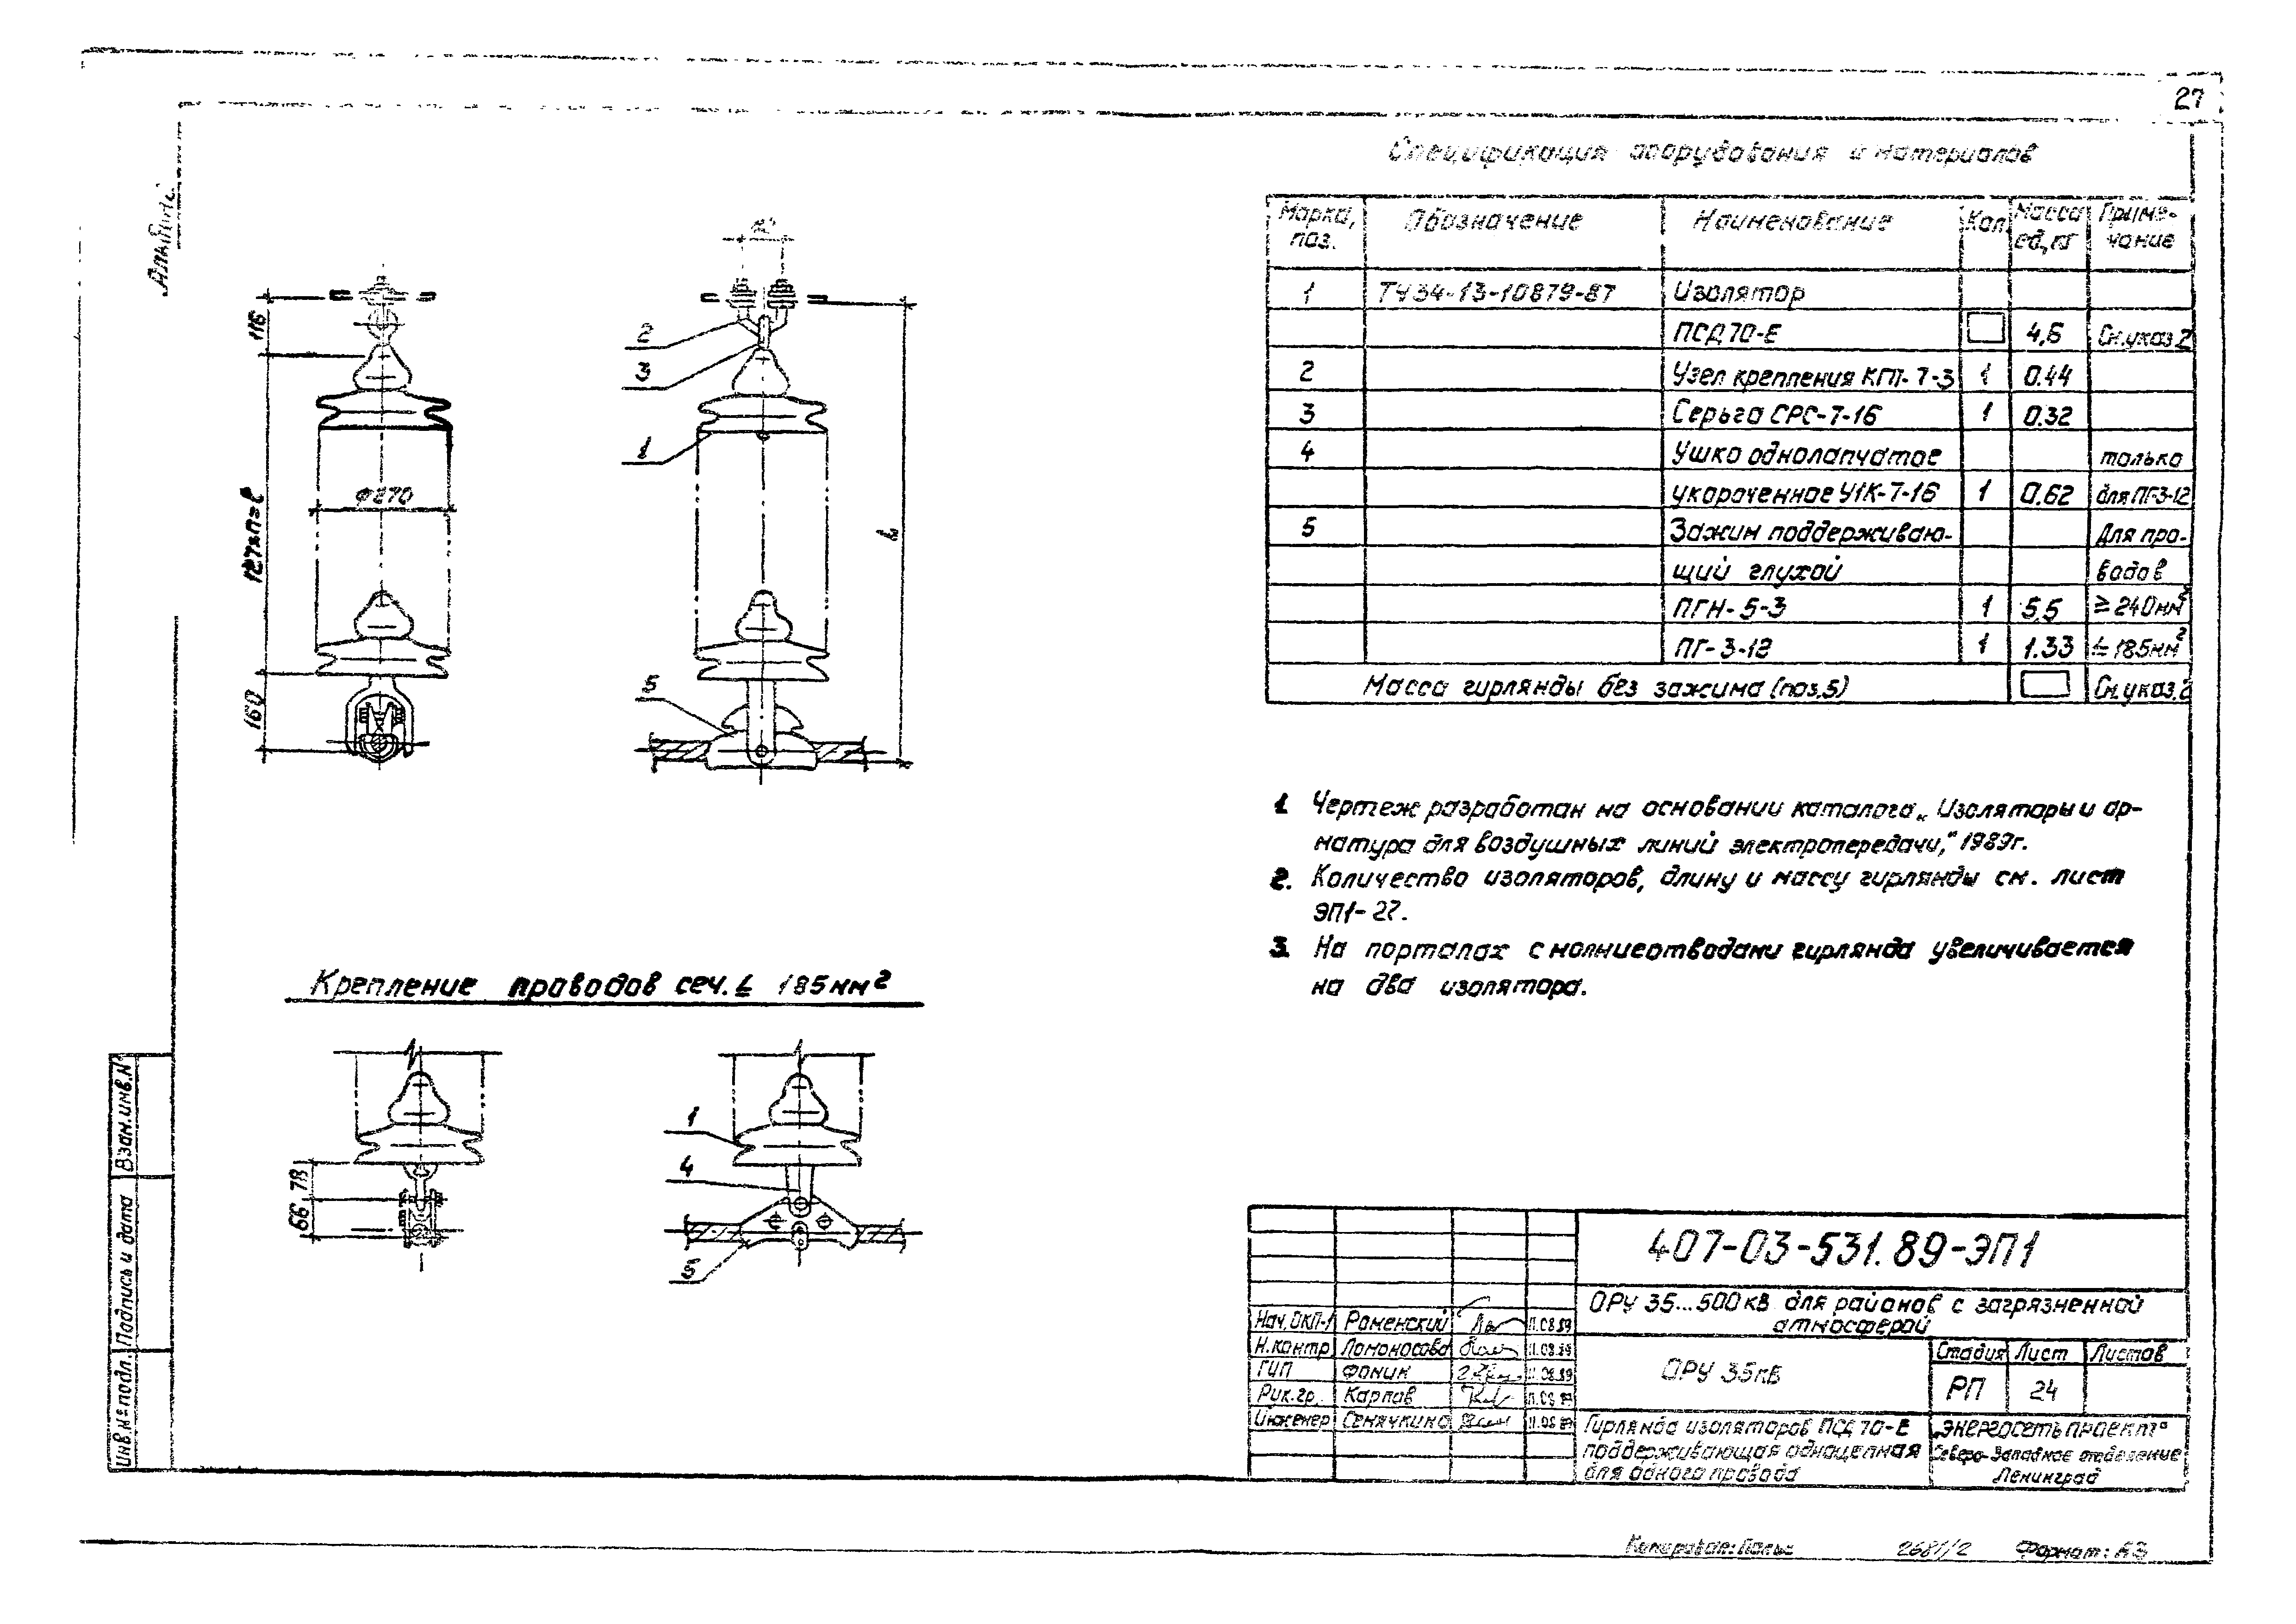 27
Альбом
Спецификация оборудования и материалов
Марка, поз. Обозначение Наименование Кол. Масса ед,кг Приме-чание
1 ТУ34-13-10879-87 Изолятор
ПСД70-Е 4,6 См.указ.2
2 Узел крепления КГП-7-3 1 0.44
3 Серьга СРС-7-16 1 0.32
4 Ушко однолапчатое только
укороченное У1К-7-16 1 0.62 для ПГ-3-12
5 Зажим поддерживаю- Для про-
щий глухой водов
ПГН-5-3 1 5,5 ≥240мм²
ПГ-3-12 1 1.33 ≤185мм²
Масса гирлянды без зажима (поз.5) См.указ.2
116
127×n=ℓ
160
Ф270
2
3
1
5
L
1. Чертеж разработан на основании каталога „Изоляторы и ар-
матура для воздушных линий электропередачи,“ 1989г.
2. Количество изоляторов, длину и массу гирлянды см. лист
ЭП1-27.
3. На порталах с молниеотводами гирлянда увеличивается
на два изолятора.
Крепление проводов сеч. ≤ 185мм²
78
66
1
4
5
Взам.инв.№
Подпись и дата
Инв.№ подл.
407-03-531.89-ЭП1
ОРУ 35...500кВ для районов с загрязненной
атмосферой
Нач.ОКП-1 Роменский 11.08.89
Н.контр. Ломоносова 11.08.89
ГИП Фомин 11.08.89
Рук.гр. Карпов 11.08.89
Инженер Сенячкина 11.08.89
ОРУ 35кВ
Стадия Лист Листов
РП 24
Гирлянда изоляторов ПСД70-Е
поддерживающая одноцепная
для одного провода
„Энергосетьпроект“
Северо-Западное отделение
Ленинград
Копировал:
2681/2
Формат: А3